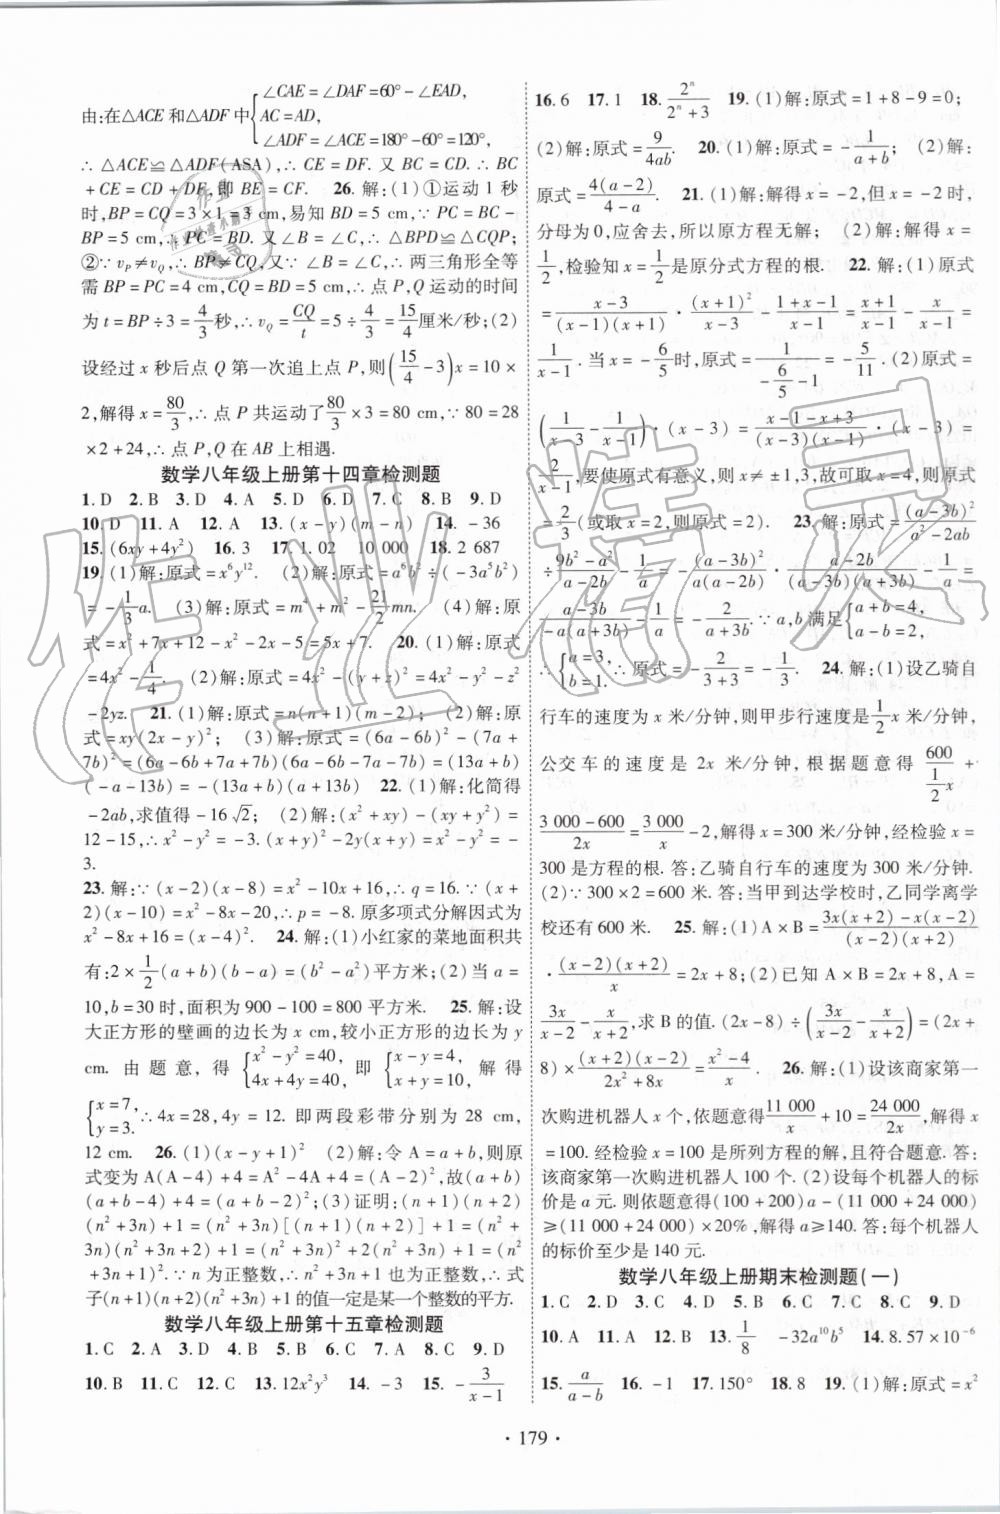 由:在△ACE 和△ADF 中{∠CAE=∠DAF=60°-∠EAD,
AC=AD,
∠ADF=∠ACE=180°-60°=120°,
∴△ACE≌△ADF(ASA),∴CE=DF. 又 BC=CD.∴BC
+CE=CD+DF,即 BE=CF. 26. 解:(1)①运动 1 秒
时,BP=CQ=3×1=3 cm,易知 BD=5 cm,∵PC=8-3
=5 cm,∴PC=BD. 又∠B=∠C,∴△BPD≌△CQP;
②∵v_P≠v_Q,∴BP≠CQ,又∵∠B=∠C,∴两三角形全等
需 BP=PC=4 cm,CQ=BD=5 cm.∴点 P,Q 运动的时间
为 t=BP÷3=4/3秒,∴v_Q=CQ/t=5÷4/3=15/4厘米/秒;(2)
设经过 x 秒后点 Q 第一次追上点 P,则(15/4-3)x=10×
2,解得 x=80/3,∴点 P 共运动了80/3×3=80 cm,∵80=28
×2+24,∴点 P,Q 在 AB 上相遇.
数学八年级上册第十四章检测题
1. D 2. B 3. D 4. A 5. D 6. D 7. C 8. B 9. D
10. D 11. A 12. A 13. (x-y)(m-n) 14. -36
15. (6xy+4y²) 16. 3 17. 1.02 10 000 18. 2 687
19. (1)解:原式=x⁶y¹². (2)解:原式=a⁶b²÷(-3a⁵b²)
=-1/3a. (3)解:原式=m⁴+m²-21/2mn. (4)解:原
式=x²+7x+12-x²-2x-5=5x+7. 20. (1)解:原式
=4x²-1/4. (2)解:原式=4x²-(y+z)²=4x²-y²-z²
-2yz. 21. (1)解:原式=n(n+1)(m-2). (2)解:原
式=xy(2x-y)²; (3)解:原式=(6a-6b)²-(7a+
7b)²=(6a-6b+7a+7b)(6a-6b-7a-7b)=(13a+b)
(-a-13b)=-(13a+b)(a+13b) 22. (1)解:化简得
-2ab,求值得-16√2; (2)解:(x²+xy)-(xy+y²)=
12-15,∴x²-y²=-3.(x+y)²-2y(x+y)=x²-y²=-
3.
23. 解:∵(x-2)(x-8)=x²-10x+16,∴q=16. ∵(x+
2)(x-10)=x²-8x-20,∴p=-8. 原多项式分解因式为
x²-8x+16=(x-4)². 24. 解:(1)小红家的菜地面积共
有:2×1/2(a+b)(b-a)=(b²-a²)平方米; (2)当 a=
10,b=30 时,面积为 900-100=800 平方米. 25. 解:设
大正方形的壁画的边长为 x cm,较小正方形的边长为 y
cm. 由题意,得{x²-y²=40, 4x+4y=40, 即{x-y=4, x+y=10, 解得
{x=7, y=3. ∴4x=28,4y=12. 即两段彩带分别为 28 cm,
12 cm. 26. (1)(x-y+1)² (2)解:令 A=a+b,则原
式变为 A(A-4)+4=A²-4A+4=(A-2)²,故(a+b)
(a+b-4)+4=(a+b-2)² (3)证明:(n+1)(n+2)
(n²+3n)+1=(n²+3n)[(n+1)(n+2)]+1=(n²+
3n)(n²+3n+2)+1=(n²+3n)²+2(n²+3n)+1=(n²+
3n+1)².∵n 为正整数,∴n²+3n+1 也为正整数,∴式
子(n+1)(n+2)(n²+3n)+1 的值一定是某一个整数的平方.
数学八年级上册第十五章检测题
1. C 2. A 3. D 4. A 5. D 6. B 7. A 8. C 9. D
10. B 11. C 12. C 13. 12x²y³ 14. -3 15. -3/(x-1)
16. 6 17. 1 18. 2ⁿ/(2ⁿ+3) 19. (1)解:原式=1+8-9=0;
(2)解:原式=9/(4ab). 20. (1)解:原式=-1/(a+b); (2)解:
原式=4(a-2)/(4-a). 21. (1)解:解得 x=-2,但 x=-2 时,
分母为 0,应舍去,所以原方程无解; (2)解:解得 x=
1/2,检验知 x=1/2是原分式方程的根. 22. 解:(1)原式
=(x-3)/((x-1)(x+1))·(x+1)²/(x-3)-(1+x)/(x-1)=(x+1)/(x-1)-x/(x-1)=
1/(x-1). 当 x=-6/5时,原式=1/(-6/5-1)=-5/11. (2)原式=
(1/(x-3)-1/(x-1))·(x-3)=(x-1-x+3)/((x-3)(x-1))·(x-3)=
2/(x-1),要使原式有意义,则 x≠±1,3,故可取 x=4,则原式
=2/3(或取 x=2,则原式=2). 23. 解:原式=(a-3b)²/(a²-2ab)
÷(9b²-a²)/(a-2b)-1/a=(a-3b)²/(a(a-2b))·(a-2b)/((3b-a)(3b+a))-1/a=
(a-3b)/(-a(a+3b))-1/a=-2/(a+3b).∵a,b 满足{a+b=4, a-b=2,
∴{a=3, b=1. ∴原式=-2/(3+3)=-1/3. 24. 解:(1)设乙骑自
行车的速度为 x 米/分钟,则甲步行速度是1/2x 米/分钟,
公交车的速度是 2x 米/分钟,根据题意得 600/(1/2x)+
(3 000-600)/2x=3 000/x-2,解得 x=300 米/分钟,经检验 x=
300 是方程的根. 答:乙骑自行车的速度为 300 米/分钟.
(2)∵300×2=600 米. 答:当甲到达学校时,乙同学离学
校还有 600 米. 25. 解:(1)A×B=(3x(x+2)-x(x-2))/((x-2)(x+2))
·((x-2)(x+2))/x=2x+8;(2)已知 A×B=2x+8,A=
3x/(x-2)-x/(x+2),求 B 的值. (2x-8)÷(3x/(x-2)-x/(x+2))=(2x+
8)×((x+2)(x-2))/(2x²+8x)=(x²-4)/x 26. 解:(1)设该商家第一
次购进机器人 x 个,依题意得11 000/x+10=24 000/2x,解得 x
=100. 经检验 x=100 是所列方程的解,且符合题意. 答:
该商家第一次购进机器人 100 个. (2)设每个机器人的标
价是 a 元. 则依题意得(100+200)a-(11 000+24 000)
≥(11 000+24 000)×20%,解得 a≥140. 答:每个机器人
的标价至少是 140 元.
数学八年级上册期末检测题(一)
1. C 2. D 3. D 4. D 5. B 6. C 7. C 8. C 9. D
10. A 11. A 12. D 13. 1/8 -32a¹⁰b⁵ 14. 8.57×10⁻⁶
15. a/(a-b) 16. -1 17. 150° 18. 8 19. (1)解:原式=x²
· 179 ·
作业精灵